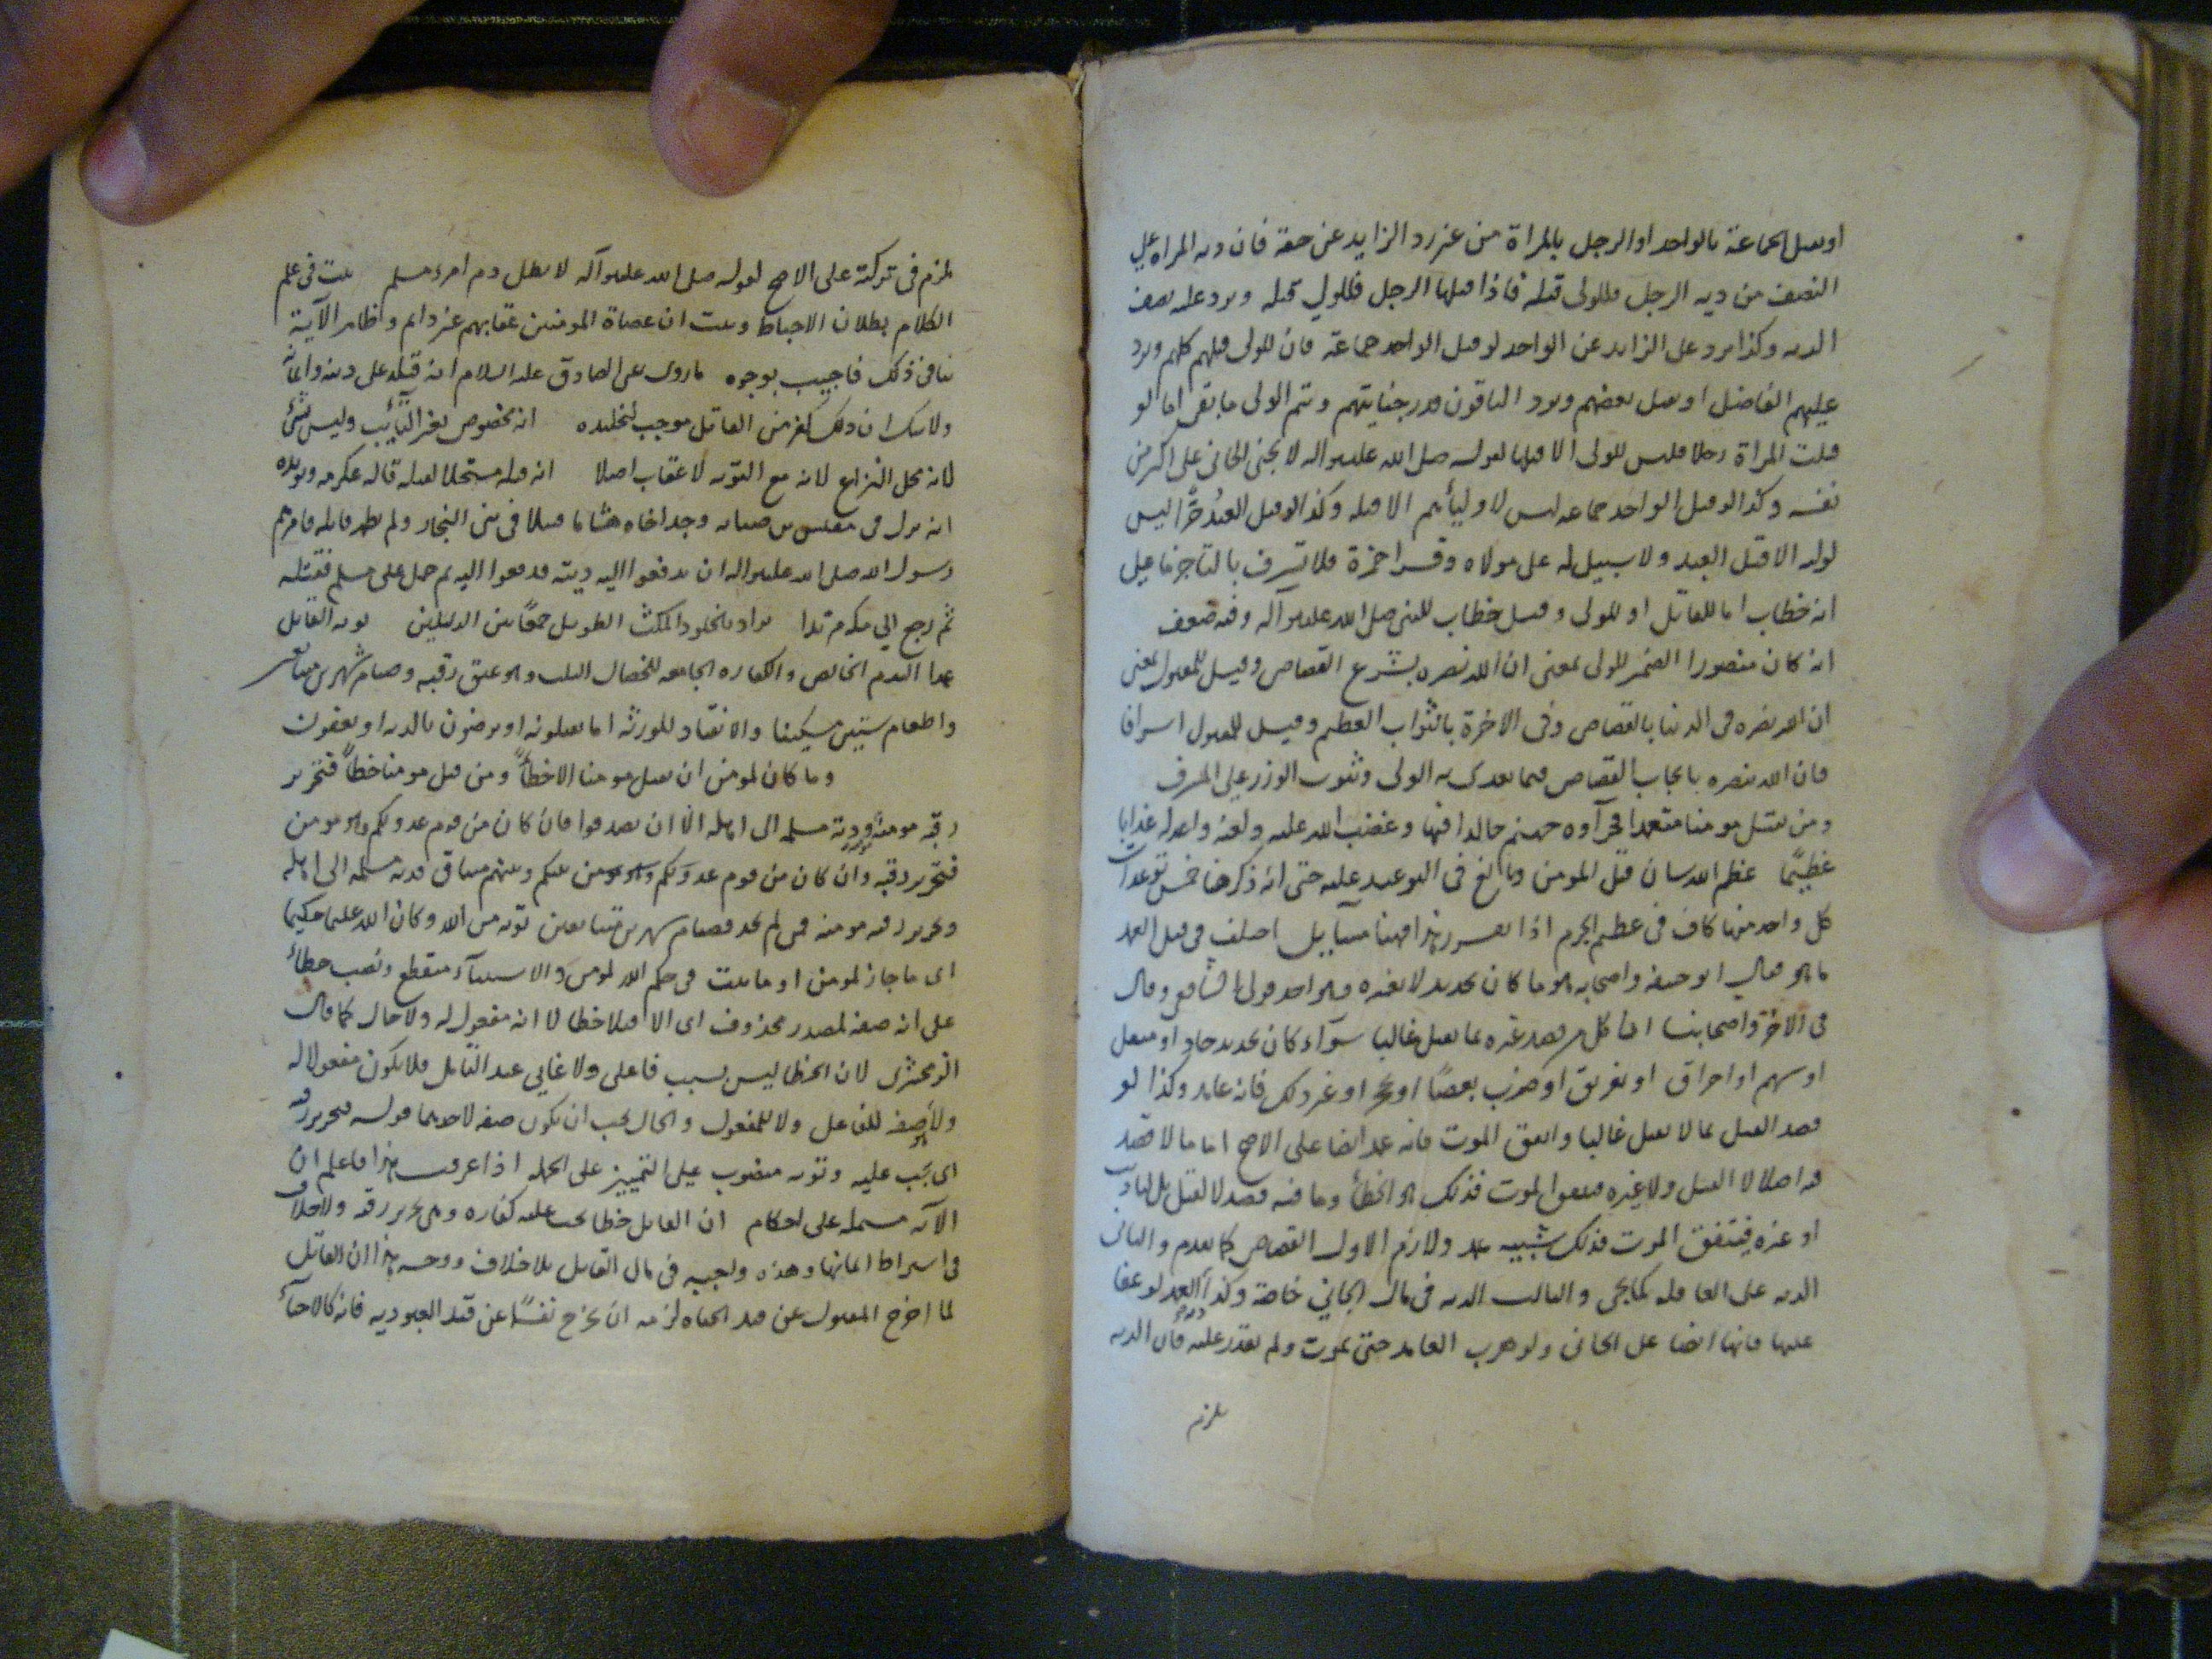 او يقتل الجماعة بالواحد او الرجل بالمراة من غير رد الزايد عن حقه فان دية المراة على
النصف من دية الرجل فللولى قتله فاذا قتلها الرجل فللولي قتله ويرد عليه نصف
الدية وكذا يرد على الزايد عن الواحد لو قتل الواحد جماعة فان للولى قتلهم كلهم ويرد
عليهم الفاضل او يقتل بعضهم ويرد الباقون قدر جنايتهم ويتم الولى ما بقى اما لو
قتلت المراة رجلا فليس للولى الا قتلها لقوله صلى الله عليه وآله لا يجنى الجانى على اكثر من
نفسه وكذا لو قتل الواحد جماعة ليس لاوليائهم الا قتله وكذا لو قتل العبد حرا ليس
لوليه الا قتل العبد ولا سبيل له على مولاه وقرا حمزة فلا تسرف بالتاء جزما على
انه خطاب اما للقاتل او للولى وقيل خطاب للنبى صلى الله عليه وآله وفيه ضعف
انه كان منصورا الضمير للولى بمعنى ان الله نصره بشرع القصاص وقيل للمقتول بمعنى
ان الله نصره فى الدنيا بالقصاص وفى الاخرة بالثواب العظيم وقيل للمقتول اسرافا
فان الله ينصره بايجاب القصاص فيما يعدى به الولى وثبوت الوزر على المسرف
ومن يقتل مومنا متعمدا فجزآوه جهنم خالدا فيها وغضب الله عليه ولعنه واعد له عذابا
عظيما عظم الله شان قتل المومن وبالغ فى الوعيد عليه حتى انه ذكر هنا خمس توعدات
كل واحد منها كاف فى عظيم الجرم اذا تقرر هذا فهنا مسايل اختلف فى قتل العمد
ما هو فقال ابو حنيفة واصحابه هو ما كان بحديد لا بغيره وهو احد قولى الشافعى وقال
فى الاخر واصحابنا ان كل من قصد غيره بما يقتل غالبا سوآء كان بحديد حاد او مثقل
او سهم او احراق او تغريق او ضرب بعصا او بحجر او غير ذلك فانه عامد وكذا لو
قصد القتل بما لا يقتل غالبا واتفق الموت فانه عمد ايضا على الاصح اما ما لا قصد
فيه اصلا لا القتل ولا غيره فيتفق الموت فذلك هو الخطأ وما فيه قصد لا لقتل بل لتاديب
او غيره فيتفق الموت فذلك شبيه عمد ولازم الاول القصاص كما تقدم والثانى
الدية على العاقلة كما يجى والثالث الدية فى مال الجاني خاصة وكذا العمد لو عفا
عليها فانها ايضا على الجانى ولو هرب العامد حتى يموت ولم يقدر عليه فان الدية
يلزم
يلزم فى تركته على الاصح لقوله صلى الله عليه وآله لا يطل دم امرء مسلم ثبت فى علم
الكلام بطلان الاحباط وثبت ان عصاة المومنين عقابهم غير دايم وظاهر الآية
ينافى ذلك فاجيب بوجوه ما روى عن الصادق عليه السلام انه قتله على دينه وايمانه
ولا شك ان ذلك كفر من القاتل موجب لتخليده انه مخصوص بغير التائب وليس بشئ
لانه محل النزاع لانه مع التوبة لا عقاب اصلا انه قتله مستحلا لقتله قاله عكرمة ويويده
انه نزل فى مقيس بن صبابة وجد اخاه هشاما قتيلا فى بنى النجار ولم يظهر قاتله فامرهم
رسول الله صلى الله عليه وآله ان يدفعوا اليه ديته فدفعوا اليه ثم حمل على مسلم فقتله
ثم رجع الي مكة مرتدا يراد بالخلود المكث الطويل جمعا بين الدليلين توبة القاتل
عمدا الندم الخالص والكفارة الجامعة للخصال الثلث وهو عتق رقبة وصيام شهرين متتابعين
واطعام ستين مسكينا والانقياد للورثة اما يقتلونه او يرضون بالدية او يعفون
وما كان لمومن ان يقتل مومنا الا خطأ ومن قتل مومنا خطأ فتحرير
رقبة مومنة ودية مسلمة الى اهله الا ان يصدقوا فان كان من قوم عدو لكم وهو مومن
فتحرير رقبة وان كان من قوم عدو لكم وهو مومن بينكم وبينهم ميثاق فدية مسلمة الى اهله
وتحرير رقبة مومنة فمن لم يجد فصيام شهرين متتابعين توبة من الله وكان الله عليما حكيما
اى ما جاز لمومن او ما ثبت فى حكم الله لمومن والاستثناء منقطع ونصب خطأ
على انه صفة لمصدر محذوف اى الا قتلا خطا لا انه مفعول له ولا حال كما قال
الزمخشرى لان الخطا ليس بسبب فاعلى ولا غايى عند القاتل فلا يكون مفعولا له
ولا صفة للفاعل ولا للمفعول والحال يجب ان يكون صفة لاحدهما قوله فتحرير رقبة
اى يجب عليه وتوبة منصوب على التمييز على الجملة اذا عرفت هذا فاعلم ان
الآية مشتملة على احكام ان القاتل خطا يجب عليه كفارة وهى تحرير رقبة ولا خلاف
فى اشتراط ايمانها وهذه واجبة فى مال القاتل بلا خلاف ووجه هذا ان القاتل
لما اخرج المقتول عن قيد الحياة لزمه ان يخرج نفسا عن قيد العبودية فانه كالاحيآء